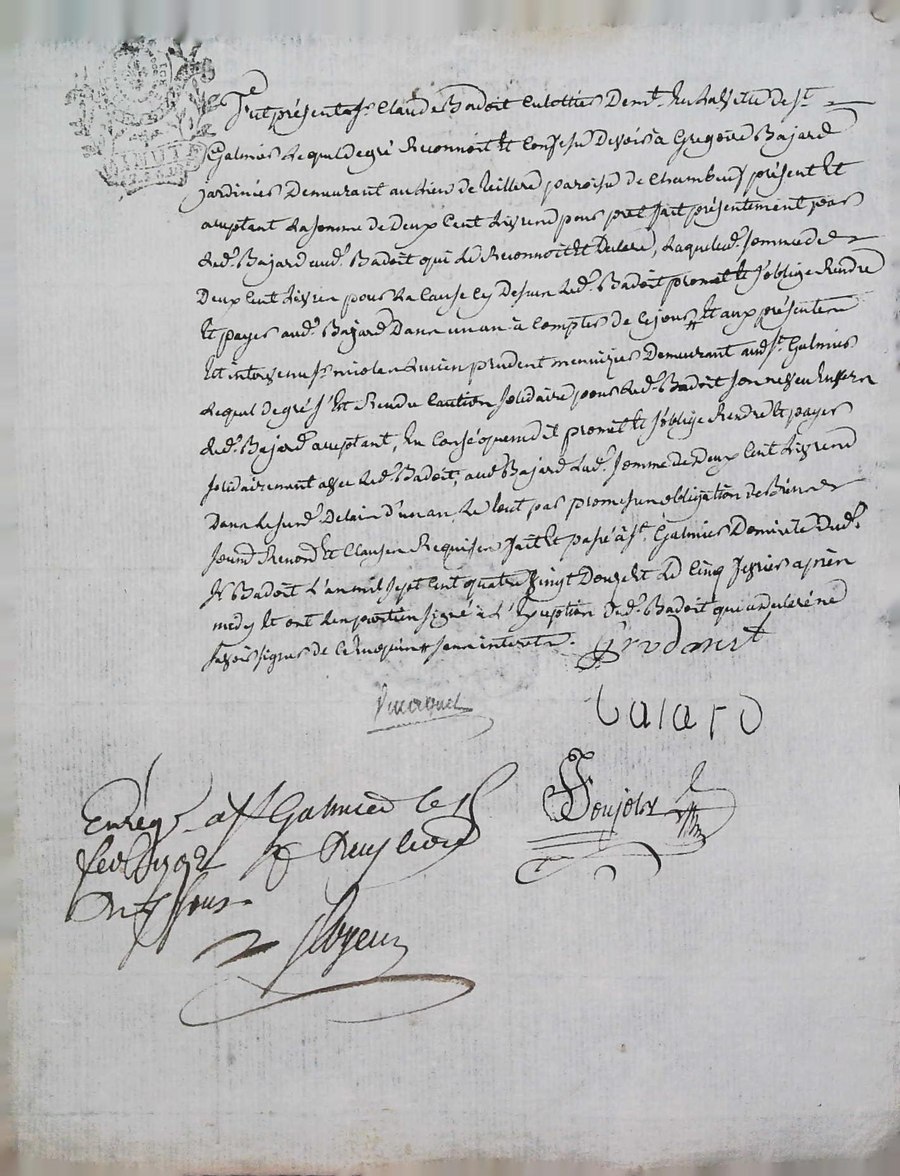 MINUTE
Fut présent Sr. Claude Badoit culottier demt. en la ville de St.
Galmier lequel de gré reconnoit et confesse devoir à Gregoire Bajard
jardinier demeurant au lieu de paroisse de Chambeuf présent et
acceptant la somme de deux cent livres pour prêt fait présentement par
led. Bajard aud. Badoit qui le reconnoit et declare, laquelle d. somme de
deux cent livres pour la cause cy dessus led. Badoit promet et s'oblige rendre
et payer aud. Bajard dans un an à compter de ce jour # et aux présentes
est intervenu Sr. prudent menuizier demeurant aud. St. Galmier
lequel de gré s'est rendu caution solidaire pour led. Badoit son neveu envers
led. Bajard acceptant, en conséquence il promet et s'oblige rendre et payer
solidairement avec led. Badoit, aud. Bajard lad. somme de deux cent livres
dans le susd. delai d'un an, le tout par promesse obligation de biens
soumd. renond. et clauses requises fait et passé à St. Galmier domicile dud.
Sr. Badoit l'an mil sept cent quatre vingt douze et le cinq fevrier après
medy et ont les parties signé à l'exception dud. Badoit qui a declaré ne
savoir signer de ce enquis # sans interets.
Prudant
baiard
Enregt. a St Galmier le
fevr 1792